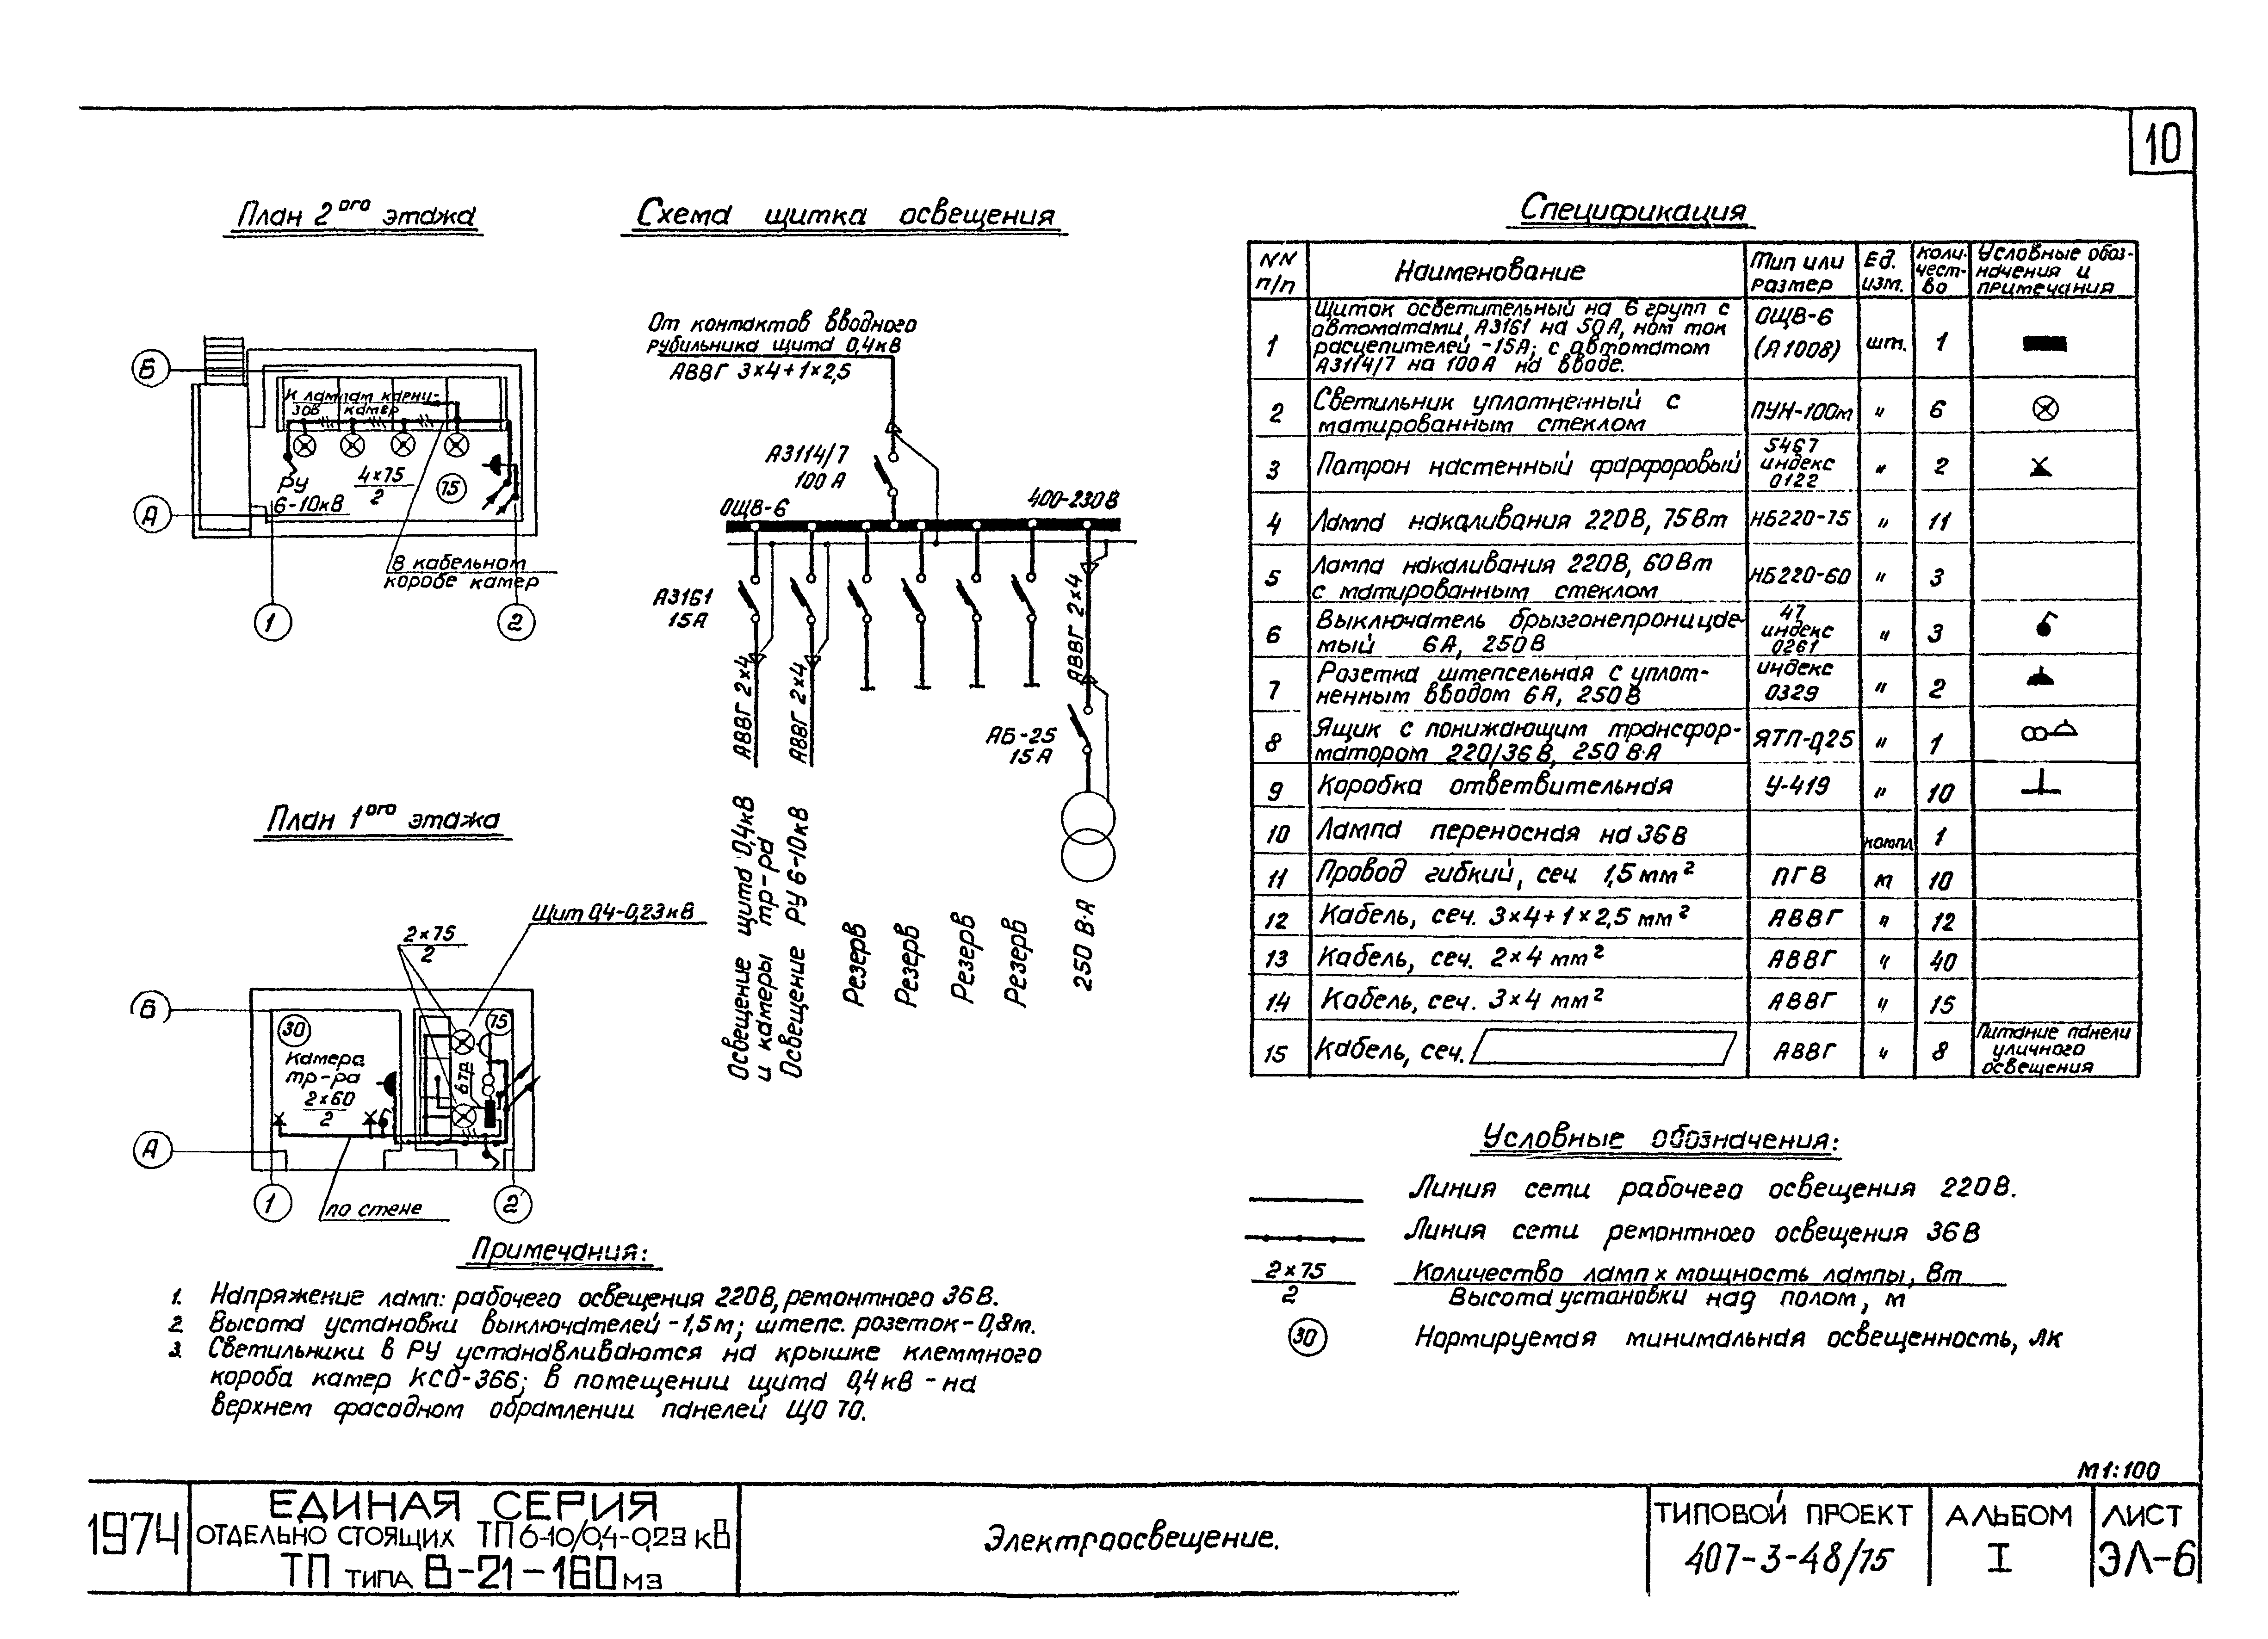 10
План 2ого этажа
Б
К лампам карни-
зов камер
РУ
6-10кВ
4×75
2
75
А
В кабельном
коробе камер
1
2
Схема щитка освещения
От контактов вводного
рубильника щита 0,4кВ
АВВГ 3×4+1×2,5
А3114/7
100 А
ОЩВ-6
400-230В
А3161
15А
АВВГ 2×4
АВВГ 2×4
АВВГ 2×4
АБ-25
15А
Освещение щита 0,4кВ
и камеры тр-ра
Освещение РУ 6-10кВ
Резерв
Резерв
Резерв
Резерв
250 В·А
План 1ого этажа
Щит 0,4-0,23кВ
2×75
2
Б
30
Камера
тр-ра
2×60
2
75
6тр
А
1
2
по стене
Примечания:
1. Напряжение ламп: рабочего освещения 220В, ремонтного 36В.
2. Высота установки выключателей-1,5м; штепс. розеток-0,8м.
3. Светильники в РУ устанавливаются на крышке клеммного
короба камер КСО-366; в помещении щита 0,4кВ - на
верхнем фасадном обрамлении панелей ЩО 70.
Спецификация
NN п/п Наименование Тип или размер Ед. изм. Коли-чест-во Условные обоз-начения и примечания
1 Щиток осветительный на 6 групп с автоматами, А3161 на 50А, ном ток расцепителей -15А; с автоматом А3114/7 на 100А на вводе. ОЩВ-6 (А1008) шт. 1
2 Светильник уплотненный с матированным стеклом ПУН-100м " 6
3 Патрон настенный фарфоровый 5467 индекс 0122 " 2
4 Лампа накаливания 220В, 75Вт НБ220-75 " 11
5 Лампа накаливания 220В, 60Вт с матированным стеклом НБ220-60 " 3
6 Выключатель брызгонепроницае-мый 6А, 250В 47 индекс 0261 " 3
7 Розетка штепсельная с уплот-ненным вводом 6А, 250В индекс 0329 " 2
8 Ящик с понижающим трансфор-матором 220/36В, 250 В·А ЯТП-0,25 " 1
9 Коробка ответвительная У-419 " 10
10 Лампа переносная на 36В компл 1
11 Провод гибкий, сеч. 1,5мм² ПГВ м 10
12 Кабель, сеч. 3×4+1×2,5 мм² АВВГ " 12
13 Кабель, сеч. 2×4 мм² АВВГ " 40
14 Кабель, сеч. 3×4 мм² АВВГ " 15
15 Кабель, сеч. АВВГ " 8 Питание панели уличного освещения
Условные обозначения:
Линия сети рабочего освещения 220В.
Линия сети ремонтного освещения 36В
2×75 Количество ламп х мощность лампы, Вт
2 Высота установки над полом, м
30 Нормируемая минимальная освещенность, лк
М1:100
1974
ЕДИНАЯ СЕРИЯ
ОТДЕЛЬНО СТОЯЩИХ ТП 6-10/0,4-0,23 кВ
ТП ТИПА В-21-160 М3
Электроосвещение.
ТИПОВОЙ ПРОЕКТ
407-3-48/75
АЛЬБОМ
I
ЛИСТ
ЭЛ-6